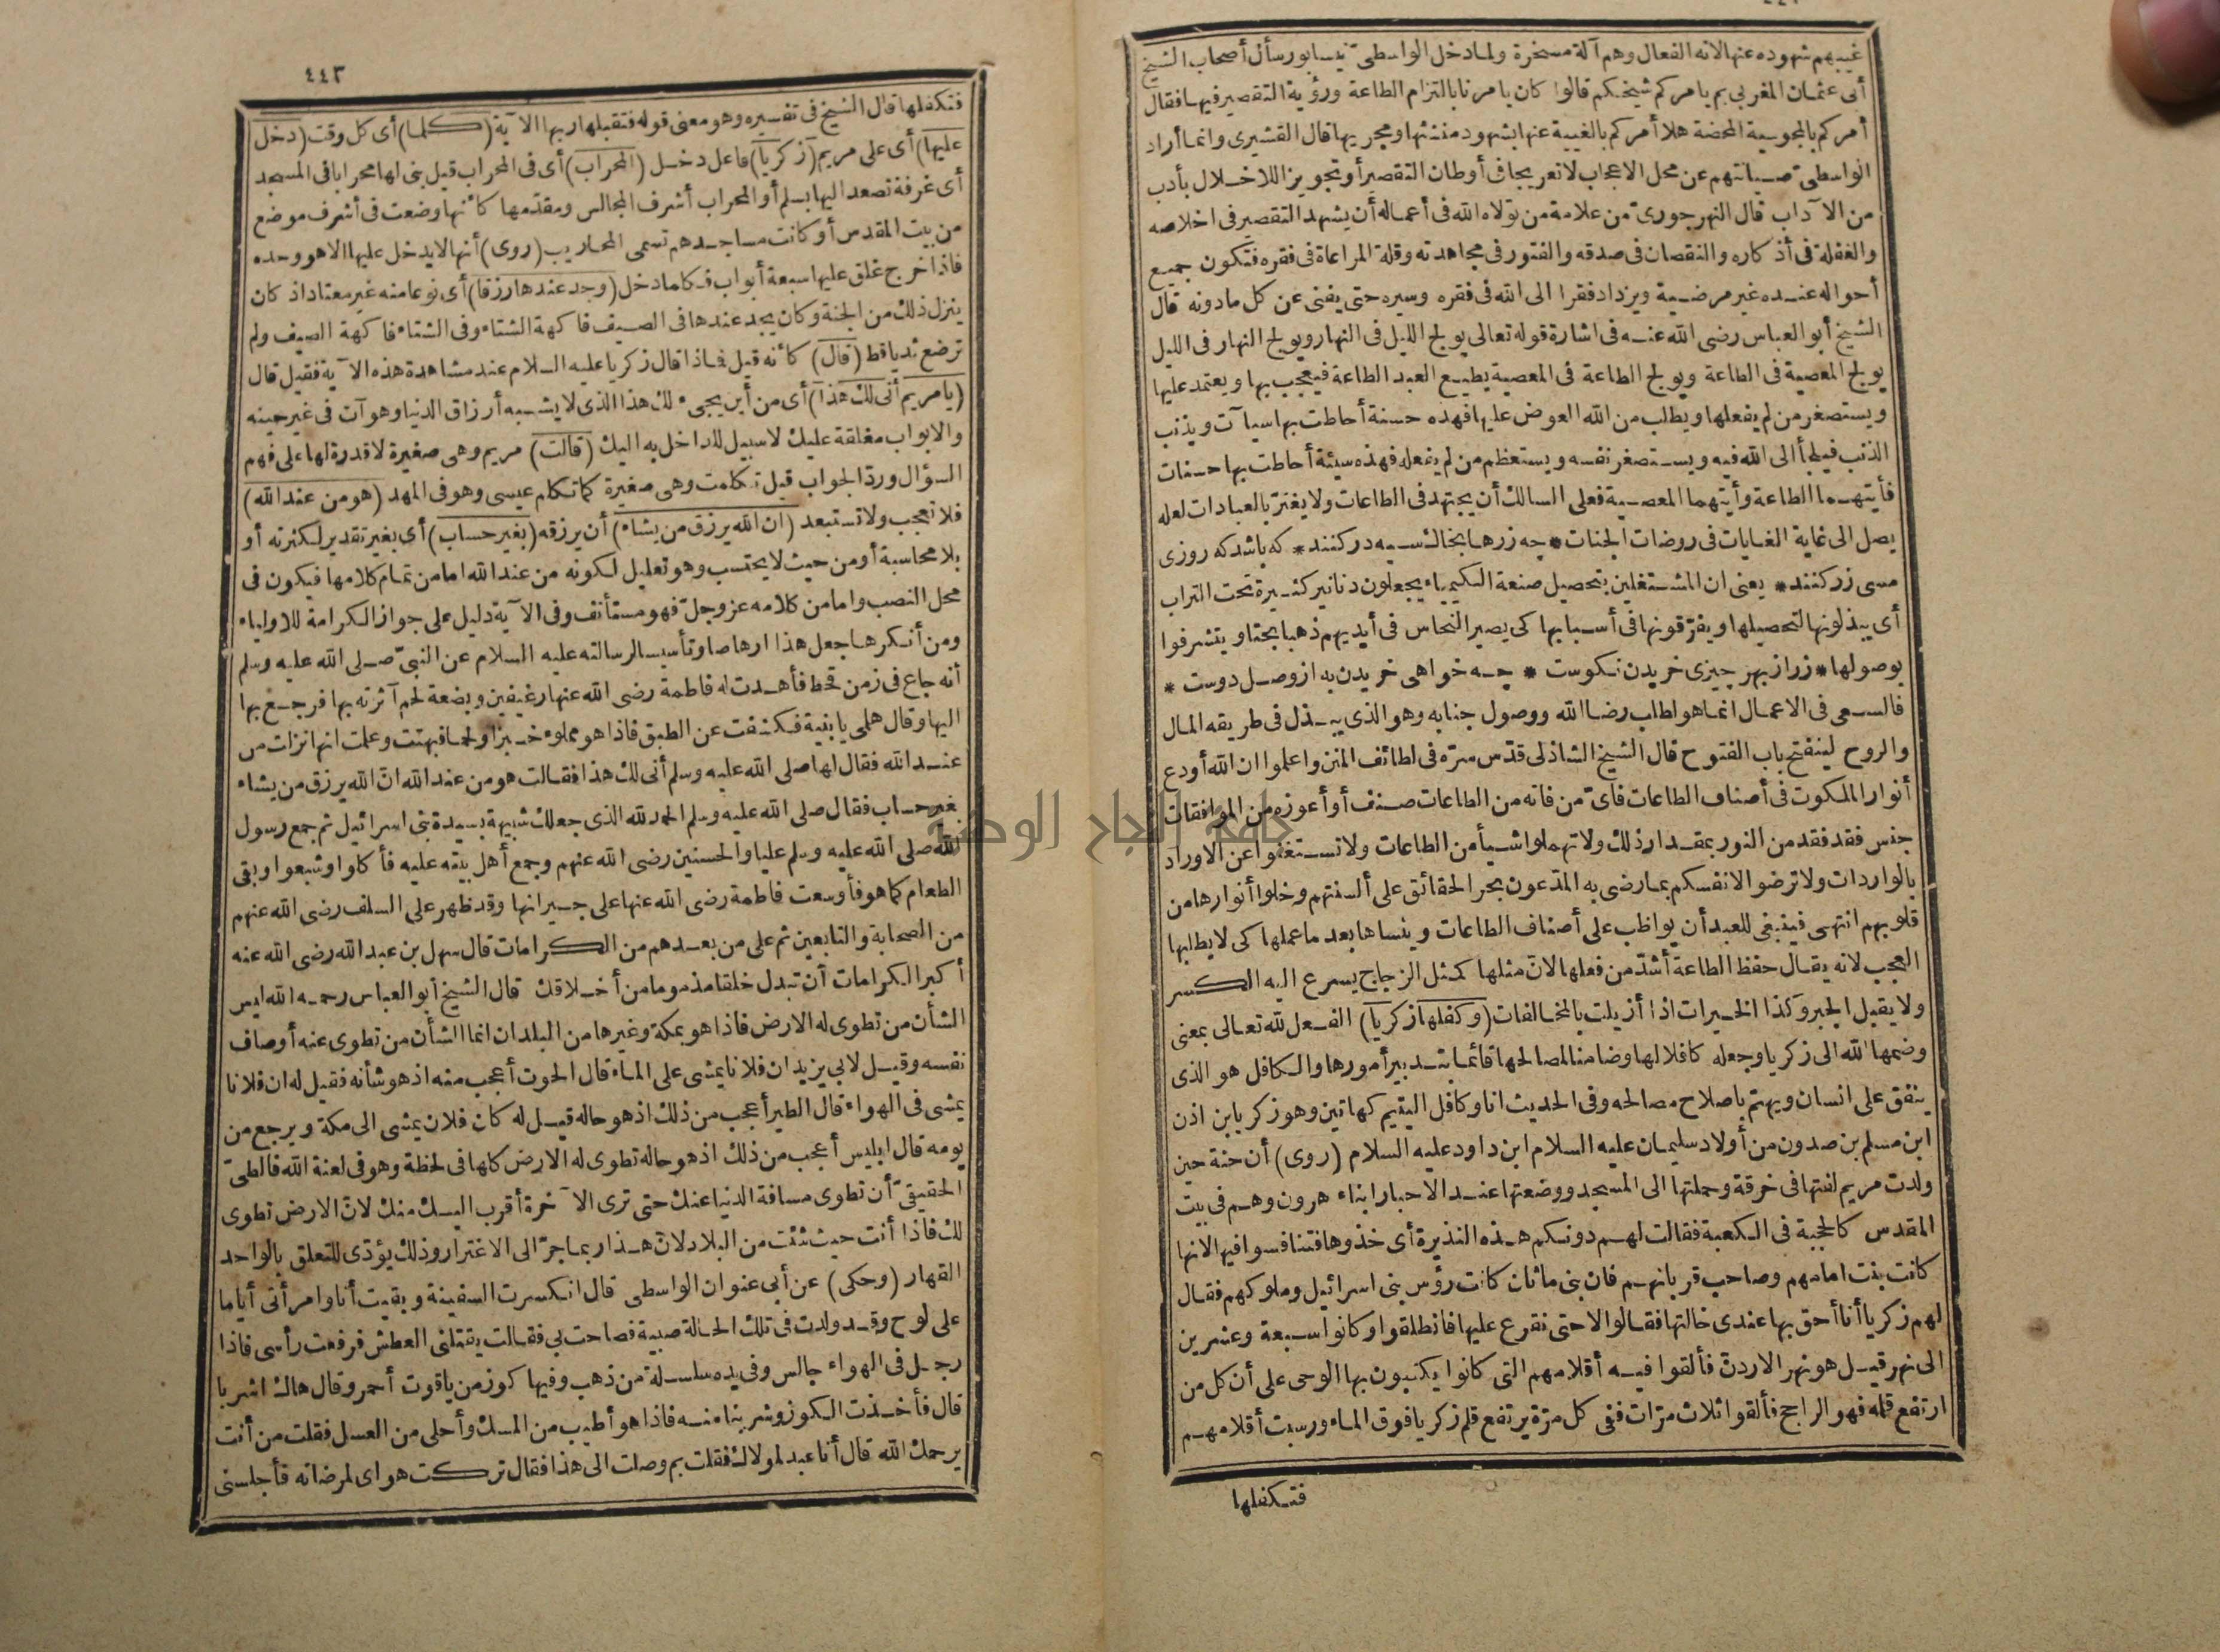 ٤٤٢
غيبهم شهوده عنها لانه الفعال وهم آلة مسخرة ولما دخل الواسطى نيسابور سأل أصحاب الشيخ
أبى عثمان المغربى بم يامركم شيخكم قالوا كان يامرنا بالتزام الطاعة ورؤية التقصير فيها فقال
أمركم بالمجوسية المحضة هلا أمركم بالغيبة عنها بشهود منشئها ومجريها قال القشيرى وانما أراد
الواسطى صيانتهم عن محل الاعجاب لا تعريجا فى أوطان التقصير أو تجويزا للاخلال بأدب
من الآداب قال النهرجورى من علامة من تولاه الله فى أعماله أن يشهد التقصير فى اخلاصه
والغفلة فى أذكاره والنقصان فى صدقه والفتور فى مجاهدته وقلة المراعاة فى فقره فتكون جميع
أحواله عنده غير مرضية ويزداد فقرا الى الله فى فقره وسيره حتى يفنى عن كل ما دونه قال
الشيخ أبو العباس رضى الله عنه فى اشارة قوله تعالى يولج الليل فى النهار ويولج النهار فى الليل
يولج المعصية فى الطاعة ويولج الطاعة فى المعصية يطيع العبد الطاعة فيعجب بها ويعتمد عليها
ويستصغر من لم يفعلها ويطلب من الله العوض عليها فهذه حسنة أحاطت بها سيآت ويذنب
الذنب فيلجأ الى الله فيه ويستصغر نفسه ويستعظم من لم يفعله فهذه سيئة أحاطت بها حسنات
فأيتهما الطاعة وأيتهما المعصية فعلى السالك أن يجتهد فى الطاعات ولا يغتر بالعبادات لعله
يصل الى غاية الغايات فى روضات الجنات * چه زرها بخاك سيه در كنند * كه باشد كه روزى
مسى زر كنند * يعنى ان المشتغلين بتحصيل صنعة الكيمياء يجعلون دنانير كثيرة تحت التراب
أى يبذلونها لتحصيلها ويفرّقونها فى أسبابها كى يصير النحاس فى أيديهم ذهبا بحتا ويتشرفوا
بوصولها * زر از بهر چيزى خريدن نكوست * چه خواهى خريدن به از وصل دوست *
فالسعى فى الاعمال انما هو لطلب رضا الله ووصول جنابه وهو الذى يبذل فى طريقه المال
والروح لينفتح باب الفتوح قال الشيخ الشاذلى قدّس سرّه فى لطائف المنن واعلموا ان الله أودع
أنوار الملكوت فى أصناف الطاعات فاىّ من فاته من الطاعات صنف أو أعوزه من الموافقات
جنس فقد فقد من النور بمقدار ذلك ولا تهملوا شيأ من الطاعات ولا تستغنوا عن الاوراد
بالواردات ولا ترضوا لانفسكم بما رضى به المدّعون بجر الحقائق على ألسنتهم وخلوا أنوارها من
قلوبهم انتهى فينبغى للعبد أن يواظب على أصناف الطاعات وينساها بعد ما عملها كى لا يطلبها
العجب لانه يقال حفظ الطاعة أشدّ من فعلها لانّ مثلها كمثل الزجاج يسرع اليه الكسر
ولا يقبل الجبر وكذا الخيرات اذا أزيلت بالمخالفات (وكفلها زكريا) الفعل لله تعالى بمعنى
وضمها الله الى زكريا وجعله كافلا لها وضامنا لمصالحها قائما بتدبير أمورها والكافل هو الذى
ينفق على انسان ويهتم باصلاح مصالحه وفى الحديث انا وكافل اليتيم كهاتين وهو زكريا بن اذن
ابن مسلم بن صدون من أولاد سليمان عليه السلام ابن داود عليه السلام (روى) أن حنة حين
ولدت مريم لفتها فى خرقة وحملتها الى المسجد ووضعتها عند الاحبار ابناء هرون وهم فى بيت
المقدس كالحجبة فى الكعبة فقالت لهم دونكم هذه النذيرة أى خذوها فتنافسوا فيها لانها
كانت بنت امامهم وصاحب قربانهم فان بنى ماثان كانت رؤس بنى اسرائيل وملوكهم فقال
لهم زكريا أنا أحق بها عندى خالتها فقالوا لا حتى نقرع عليها فانطلقوا وكانوا سبعة وعشرين
الى نهر قيل هو نهر الاردن فألقوا فيه أقلامهم التى كانوا يكتبون بها الوحى على أن كل من
ارتفع قلمه فهو الراجح فألقوا ثلاث مرّات ففى كل مرّة يرتفع قلم زكريا فوق الماء ورسبت أقلامهم
فتكفلها
٤٤٣
فتكفلها قال الشيخ فى تفسيره وهو معنى قوله فتقبلها ربها الآية (كلما) أى كل وقت (دخل
عليها) أى على مريم (زكريا) فاعل دخل (المحراب) أى فى المحراب قيل بنى لها محرابا فى المسجد
أى غرفة تصعد اليها بسلم أو المحراب أشرف المجالس ومقدّمها كأنها وضعت فى أشرف موضع
من بيت المقدس أو كانت مساجدهم تسمى المحاريب (روى) أنها لا يدخل عليها الا هو وحده
فاذا خرج غلق عليها سبعة أبواب فكلما دخل (وجد عندها رزقا) أى نوعا منه غير معتاد اذ كان
ينزل ذلك من الجنة وكان يجد عندها فى الصيف فاكهة الشتاء وفى الشتاء فاكهة الصيف ولم
ترضع ثديا قط (قال) كأنه قيل فماذا قال زكريا عليه السلام عند مشاهدة هذه الآية فقيل قال
(يا مريم أنى لك هذا) أى من أين يجىء لك هذا الذى لا يشبه أرزاق الدنيا وهو آت فى غير حينه
والابواب مغلقة عليك لا سبيل للداخل به اليك (قالت) مريم وهى صغيرة لا قدرة لها على فهم
السؤال وردّ الجواب قيل تكلمت وهى صغيرة كما تكلم عيسى وهو فى المهد (هو من عند الله)
فلا تعجب ولا تستبعد (ان الله يرزق من يشاء) أن يرزقه (بغير حساب) أى بغير تقدير لكثرته أو
بلا محاسبة أو من حيث لا يحتسب وهو تعليل لكونه من عند الله اما من تمام كلامها فيكون فى
محل النصب واما من كلامه عز وجلّ فهو مستأنف وفى الآية دليل على جواز الكرامة للاولياء
ومن أنكرها جعل هذا ارهاصا وتأسيسا لرسالته عليه السلام عن النبىّ صلى الله عليه وسلم
أنه جاع فى زمن قحط فأهدت له فاطمة رضى الله عنها رغيفين وبضعة لحم آثرته بها فرجع بها
اليها وقال هلمى يا بنية فكشفت عن الطبق فاذا هو مملوء خبزا ولحما فبهتت وعلمت انها نزلت من
عند الله فقال لها صلى الله عليه وسلم أنى لك هذا فقالت هو من عند الله انّ الله يرزق من يشاء
بغير حساب فقال صلى الله عليه وسلم الحمد لله الذى جعلك شبيهة بسيدة بنى اسرائيل ثم جمع رسول
الله صلى الله عليه وسلم عليا والحسنين رضى الله عنهم وجمع أهل بيته عليه فأكلوا وشبعوا وبقى
الطعام كما هو فأوسعت فاطمة رضى الله عنها على جيرانها وقد ظهر على السلف رضى الله عنهم
من الصحابة والتابعين ثم على من بعدهم من الكرامات قال سهل بن عبد الله رضى الله عنه
أكبر الكرامات أن تبدل خلقا مذموما من أخلاقك قال الشيخ أبو العباس رحمه الله ليس
الشأن من تطوى له الارض فاذا هو بمكة وغيرها من البلدان انما الشأن من تطوى عنه أوصاف
نفسه وقيل لابى يزيد ان فلانا يمشى على الماء قال الحوت أعجب منه اذ هو شأنه فقيل له ان فلانا
يمشى فى الهواء قال الطير أعجب من ذلك اذ هو حاله قيل له كان فلان يمشى الى مكة ويرجع من
يومه قال ابليس أعجب من ذلك اذ هو حاله تطوى له الارض كلها فى لحظة وهو فى لعنة الله فالطىّ
الحقيقىّ أن تطوى مسافة الدنيا عنك حتى ترى الآخرة أقرب اليك منك لانّ الارض تطوى
لك فاذا أنت حيث شئت من البلاد لانّ هذا ربما جرّ الى الاغترار وذلك يؤدّى للتعلق بالواحد
القهار (وحكى) عن أبى عنوان الواسطى قال انكسرت السفينة وبقيت أنا وامرأتى أياما
على لوح وقد ولدت فى تلك الحالة صبية فصاحت بى فقالت يقتلنى العطش فرفعت رأسى فاذا
رجل فى الهواء جالس وفى يده سلسلة من ذهب وفيها كوز من ياقوت أحمر وقال هاك اشربا
قال فأخذت الكوز وشربنا منه فاذا هو أطيب من المسك وأحلى من العسل فقلت من أنت
يرحمك الله قال أنا عبد لمولاك فقلت بم وصلت الى هذا فقال تركت هواى لمرضاته فأجلسنى